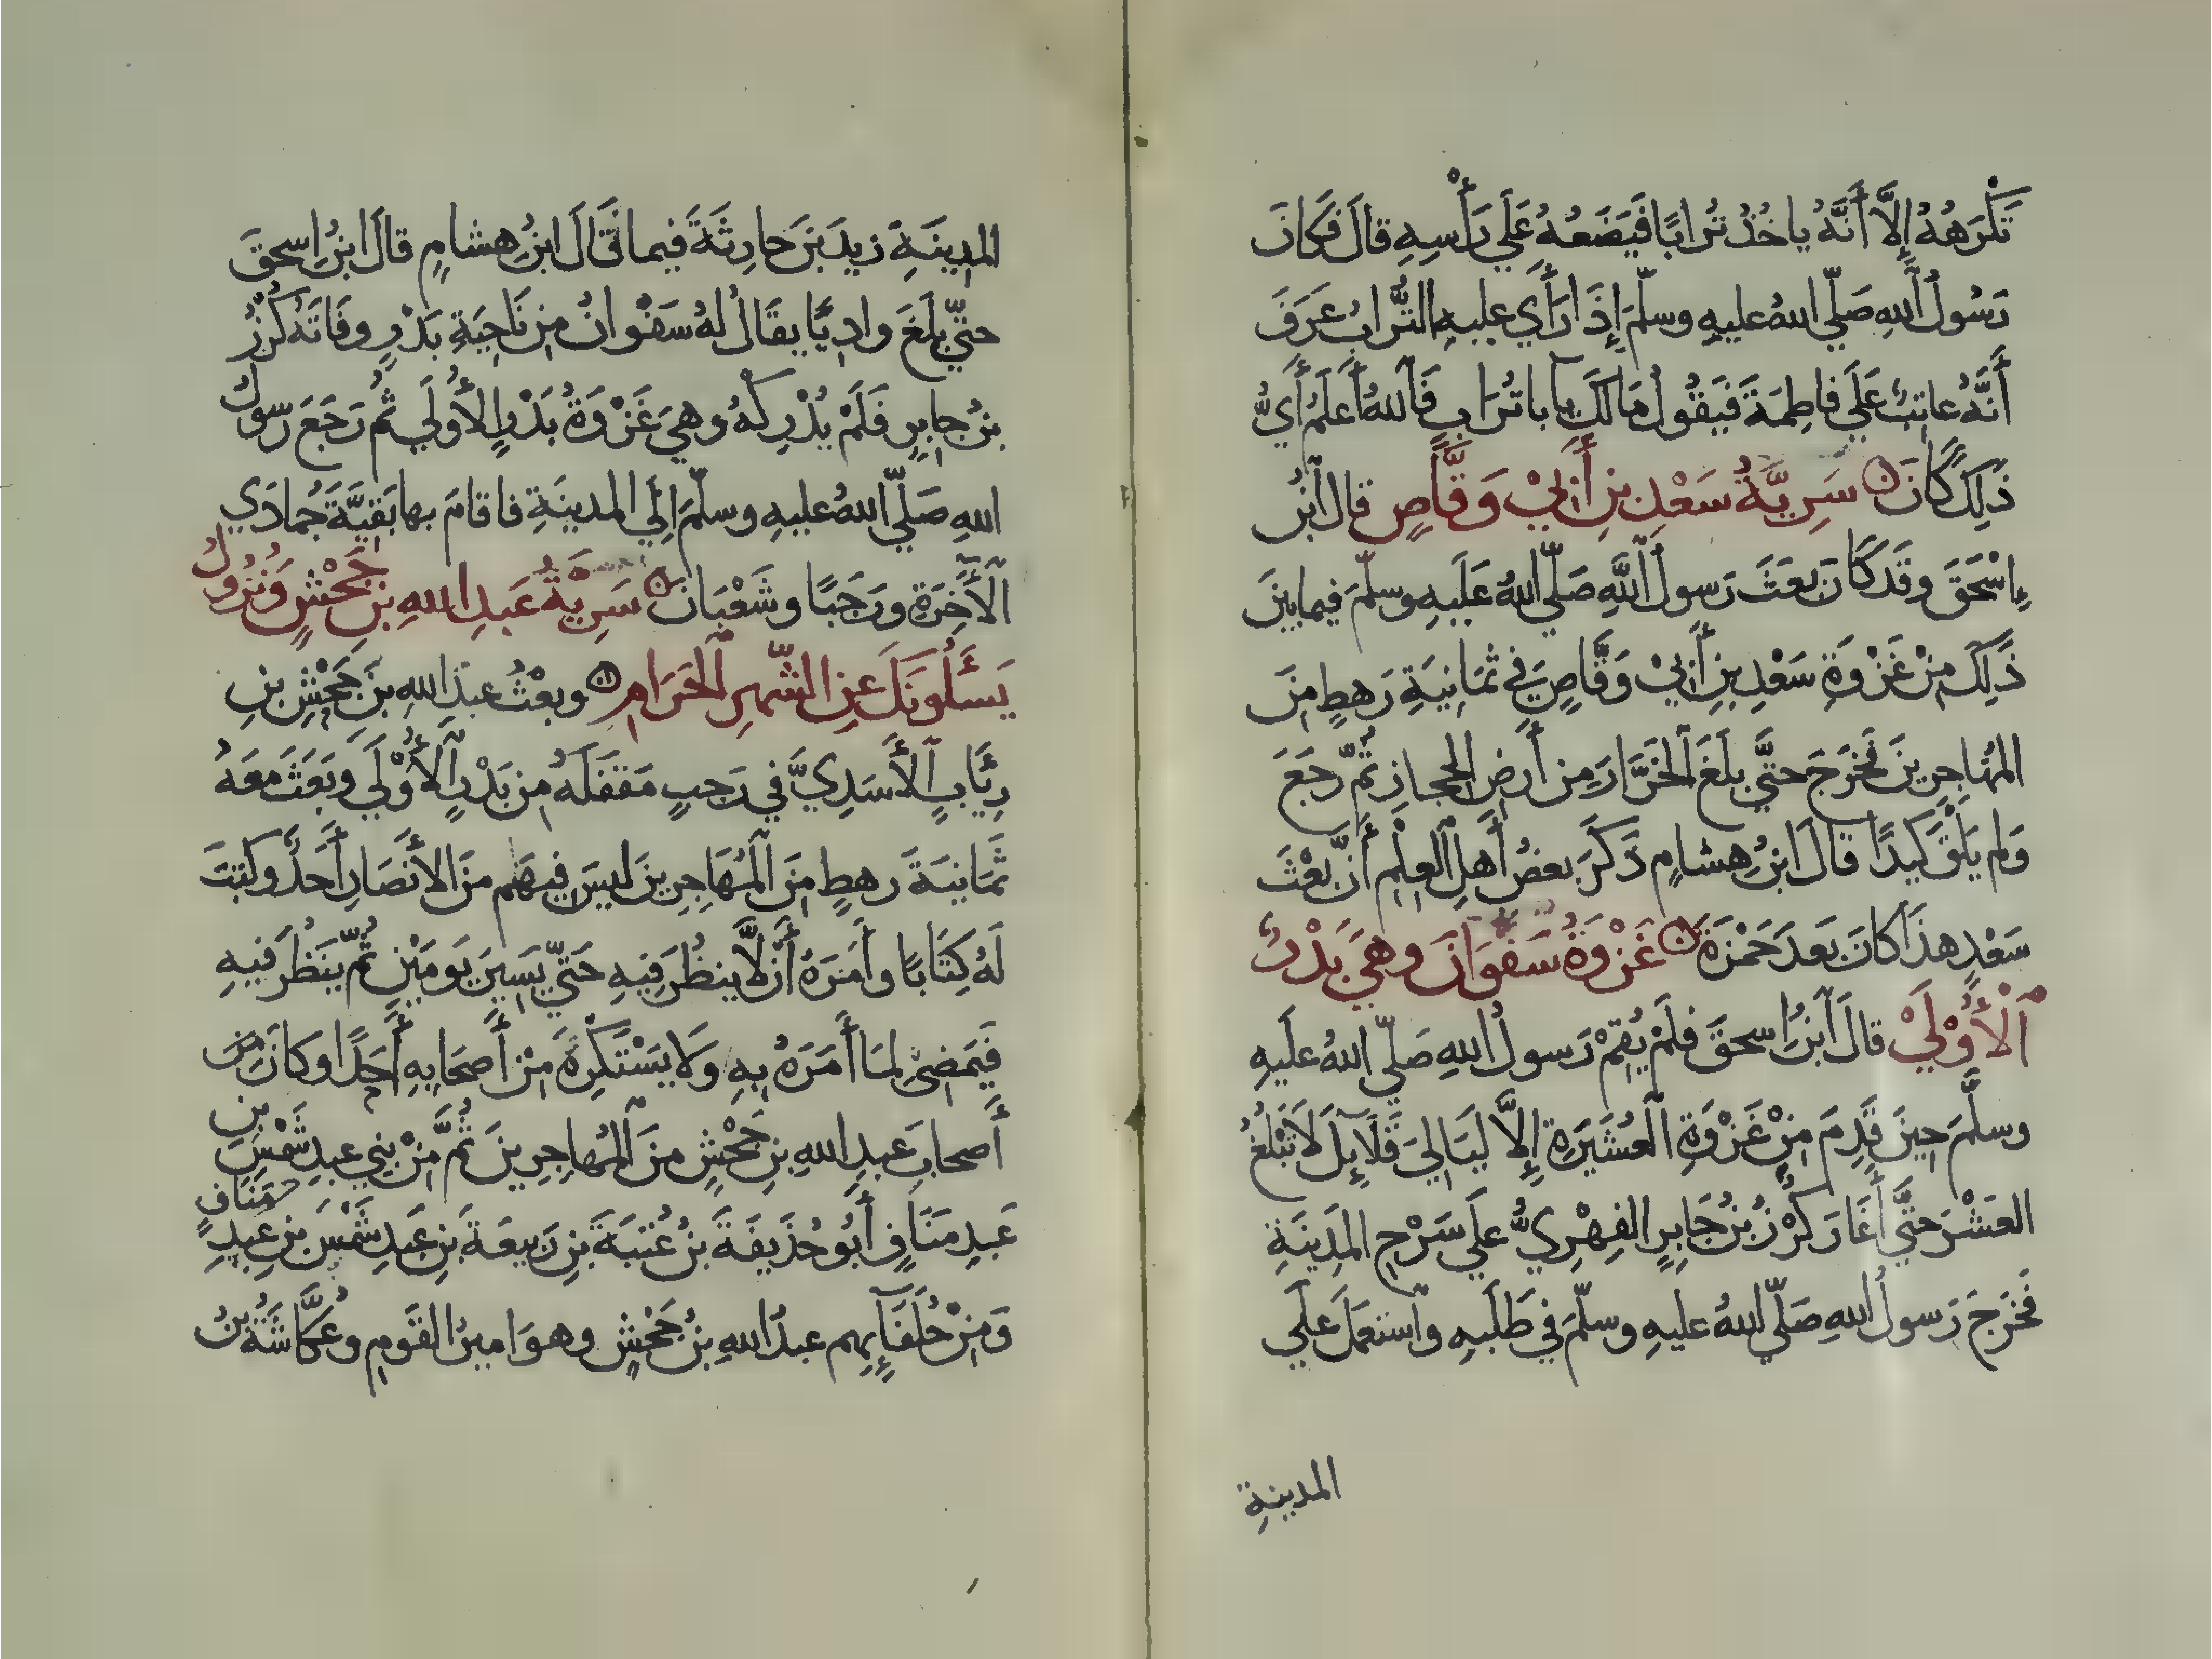 تَكْرَهُهُ إِلَّا أَنَّهُ ياخُذُ تُرَابًا فَيَضَعُهُ عَلَي رَأْسِهِ قالَ فَكانَ
رَسُولُ اللهِ صَلّي اللهُ عليهِ وسلّمَ إِذَا رَأَي عليهِ التُّرابَ عَرَفَ
أَنَّهُ عاتِبٌ عَلَي فاطِمَةَ فَيَقُولُ مَا لَكَ يآ با تُرَابٍ فَاللهُ أَعْلَمُ أَيُّ
ذَلِكَ كَانَ سَرِيَّةُ سَعْدِ بنِ أَبيْ وَقَّاصٍ قالَ ابْنُ
إِسْحَقَ وقَد كَانَ بعَثَ رَسولُ اللَّهِ صَلّي اللهُ عَلَيهِ وسلّمَ فيما بينَ
ذَلِكَ مِنْ غَزْوَةِ سَعْدِ بنِ أَبيْ وَقَّاصٍ في ثمَانِيَةِ رَهطٍ مِنَ
المُهَاجِرِينَ فَخَرَجَ حتَّي بلَغَ الخَرَّارَ مِن أَرضِ الحِجازِ ثُمّ رَجَعَ
وَلم يَلْقَ كَيدًا قالَ ابنُ هِشامٍ ذَكَرَ بعضُ أَهلِ العِلْمِ أَنَّ بعْثَ
سَعْدٍ هذَا كانَ بَعدَ حَمْزَةَ غَزْوَةُ سَفَوَانَ وهيَ بَدْرٌ
الأُوْلَيْ قالَ ابْنُ اِسحقَ فلَمْ يُقِمْ رَسولُ اللهِ صَلّي اللهُ عَلَيهِ
وسلَّمَ حِينَ قَدِمَ مِنْ غَزْوَةِ العُشَيرَةِ إِلَّا لَيَالِيَ قَلَآئِلَ لَا تَبْلُغُ
العَشْرَ حتَّي أَغَارَ كُرْزُ بنُ جَابِرٍ الفِهْرِيُّ علَي سَرْحِ المَدِينَةِ
فَخَرَجَ رَسولُ اللهِ صَلّي اللهُ عليهِ وسلّمَ في طَلَبِهِ واستعمَلَ علَي
المدينةِ
المدِينَةِ زيدَ بنَ حارِثَةَ فيما قَالَ ابنُ هِشامٍ قالَ ابنُ اِسحقَ
حتّي بلَغَ وادِيًا يقَالُ لهُ سَفوانُ مِن نَاحِيَةِ بَدْرٍ وفَاتَهُ كُرْزُ
بنُ جابِرٍ فَلَمْ يُدْرِكْهُ وهيَ غَزْوَةُ بَدْرٍ الأُولَي ثُم رَجَعَ رَسولُ
اللهِ صَلّي اللهُ عليهِ وسلّمَ إِلَي المدينَةِ فاقامَ بها بَقِيَّةَ جُمادَي
الآخِرَةِ ورَجَبًا وشَعْبَانَ سَرِيَّةُ عَبدِ اللهِ بنِ جَحْشٍ وَنُزُولُ
يَسْـَٔلُونَكَ عَنِ الشّهرِ الحَرَامِ وبعْثُ عبدِ اللهِ بنَ جَحْشِ بنِ
رِئَابٍ الأَسَدِيَّ في رَجبٍ مَقفَلَهُ مِن بَدْرٍ الأُوْلَي وبَعَثَ معَهُ
ثَمانيَةَ رهطٍ مِنَ المُهَاجِرِينَ ليسَ فيهَم منَ الأَنصَارِ أَحَدٌ وكتَبَ
لهُ كِتَابًا وأَمَرَهُ أَن لَّا ينظُرَ فِيهِ حَتّي يَسِيرَ يَومَيْنِ ثُمّ يَنظُرَ فيهِ
فَيَمضِيَ لمَا أَمَرَهُ بِهِ وَلَا يسْتَكرِهَ مِنْ أَصحَابِهِ أَحَدًا وكانَ مِن
أَصحابِ عَبدِ اللهِ بنِ جَحْشٍ منَ المُهاجِرِينَ ثُمَّ مِنْ بنِي عبدِ شَمْسِ بنِ
عَبدِ مَنَافٍ أَبُو حُذَيفَةَ بنُ عُتبَةَ بنِ رَبِيعَةَ بنِ عَبدِ شَمْسِ بنِ عَبدِ مَنَافٍ
وَمِنْ حُلَفَآئِهِم عبدُ اللهِ بنُ جَحْشٍ وهوَ اميرُ القَومِ وعُكَّاشَةُ بنُ